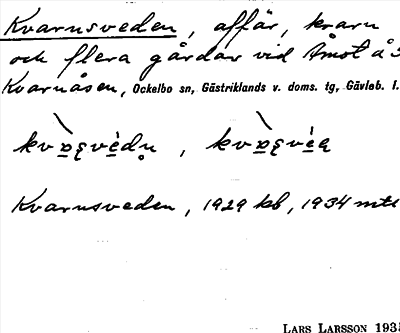 Kvarnsveden, affär, kvarn
och flera gårdar vid Åmot å S
Kvarnåsen, Ockelbo sn, Gästriklands v. doms. tg, Gävleb. l.
Kvarnsveden, 1929 kb, 1934 mtl
LARS LARSSON 1935